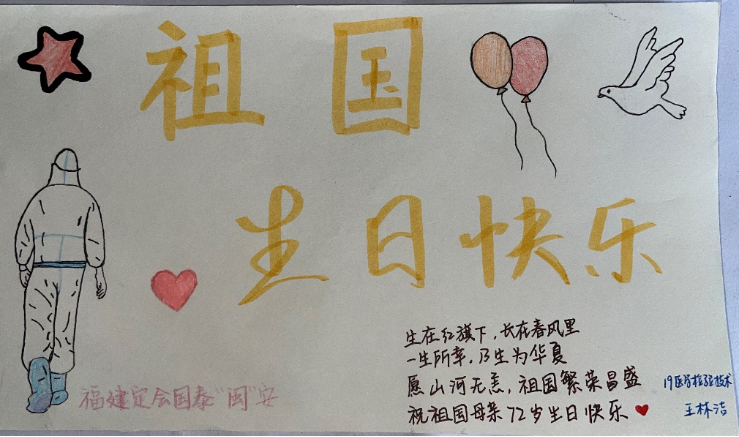 祖国
生日快乐
生在红旗下，长在春风里
一生所幸，乃生为华夏
愿山河无恙，祖国繁荣昌盛
祝祖国母亲72岁生日快乐
19医学检验技术
王林洁
福建定会国泰“闽”安